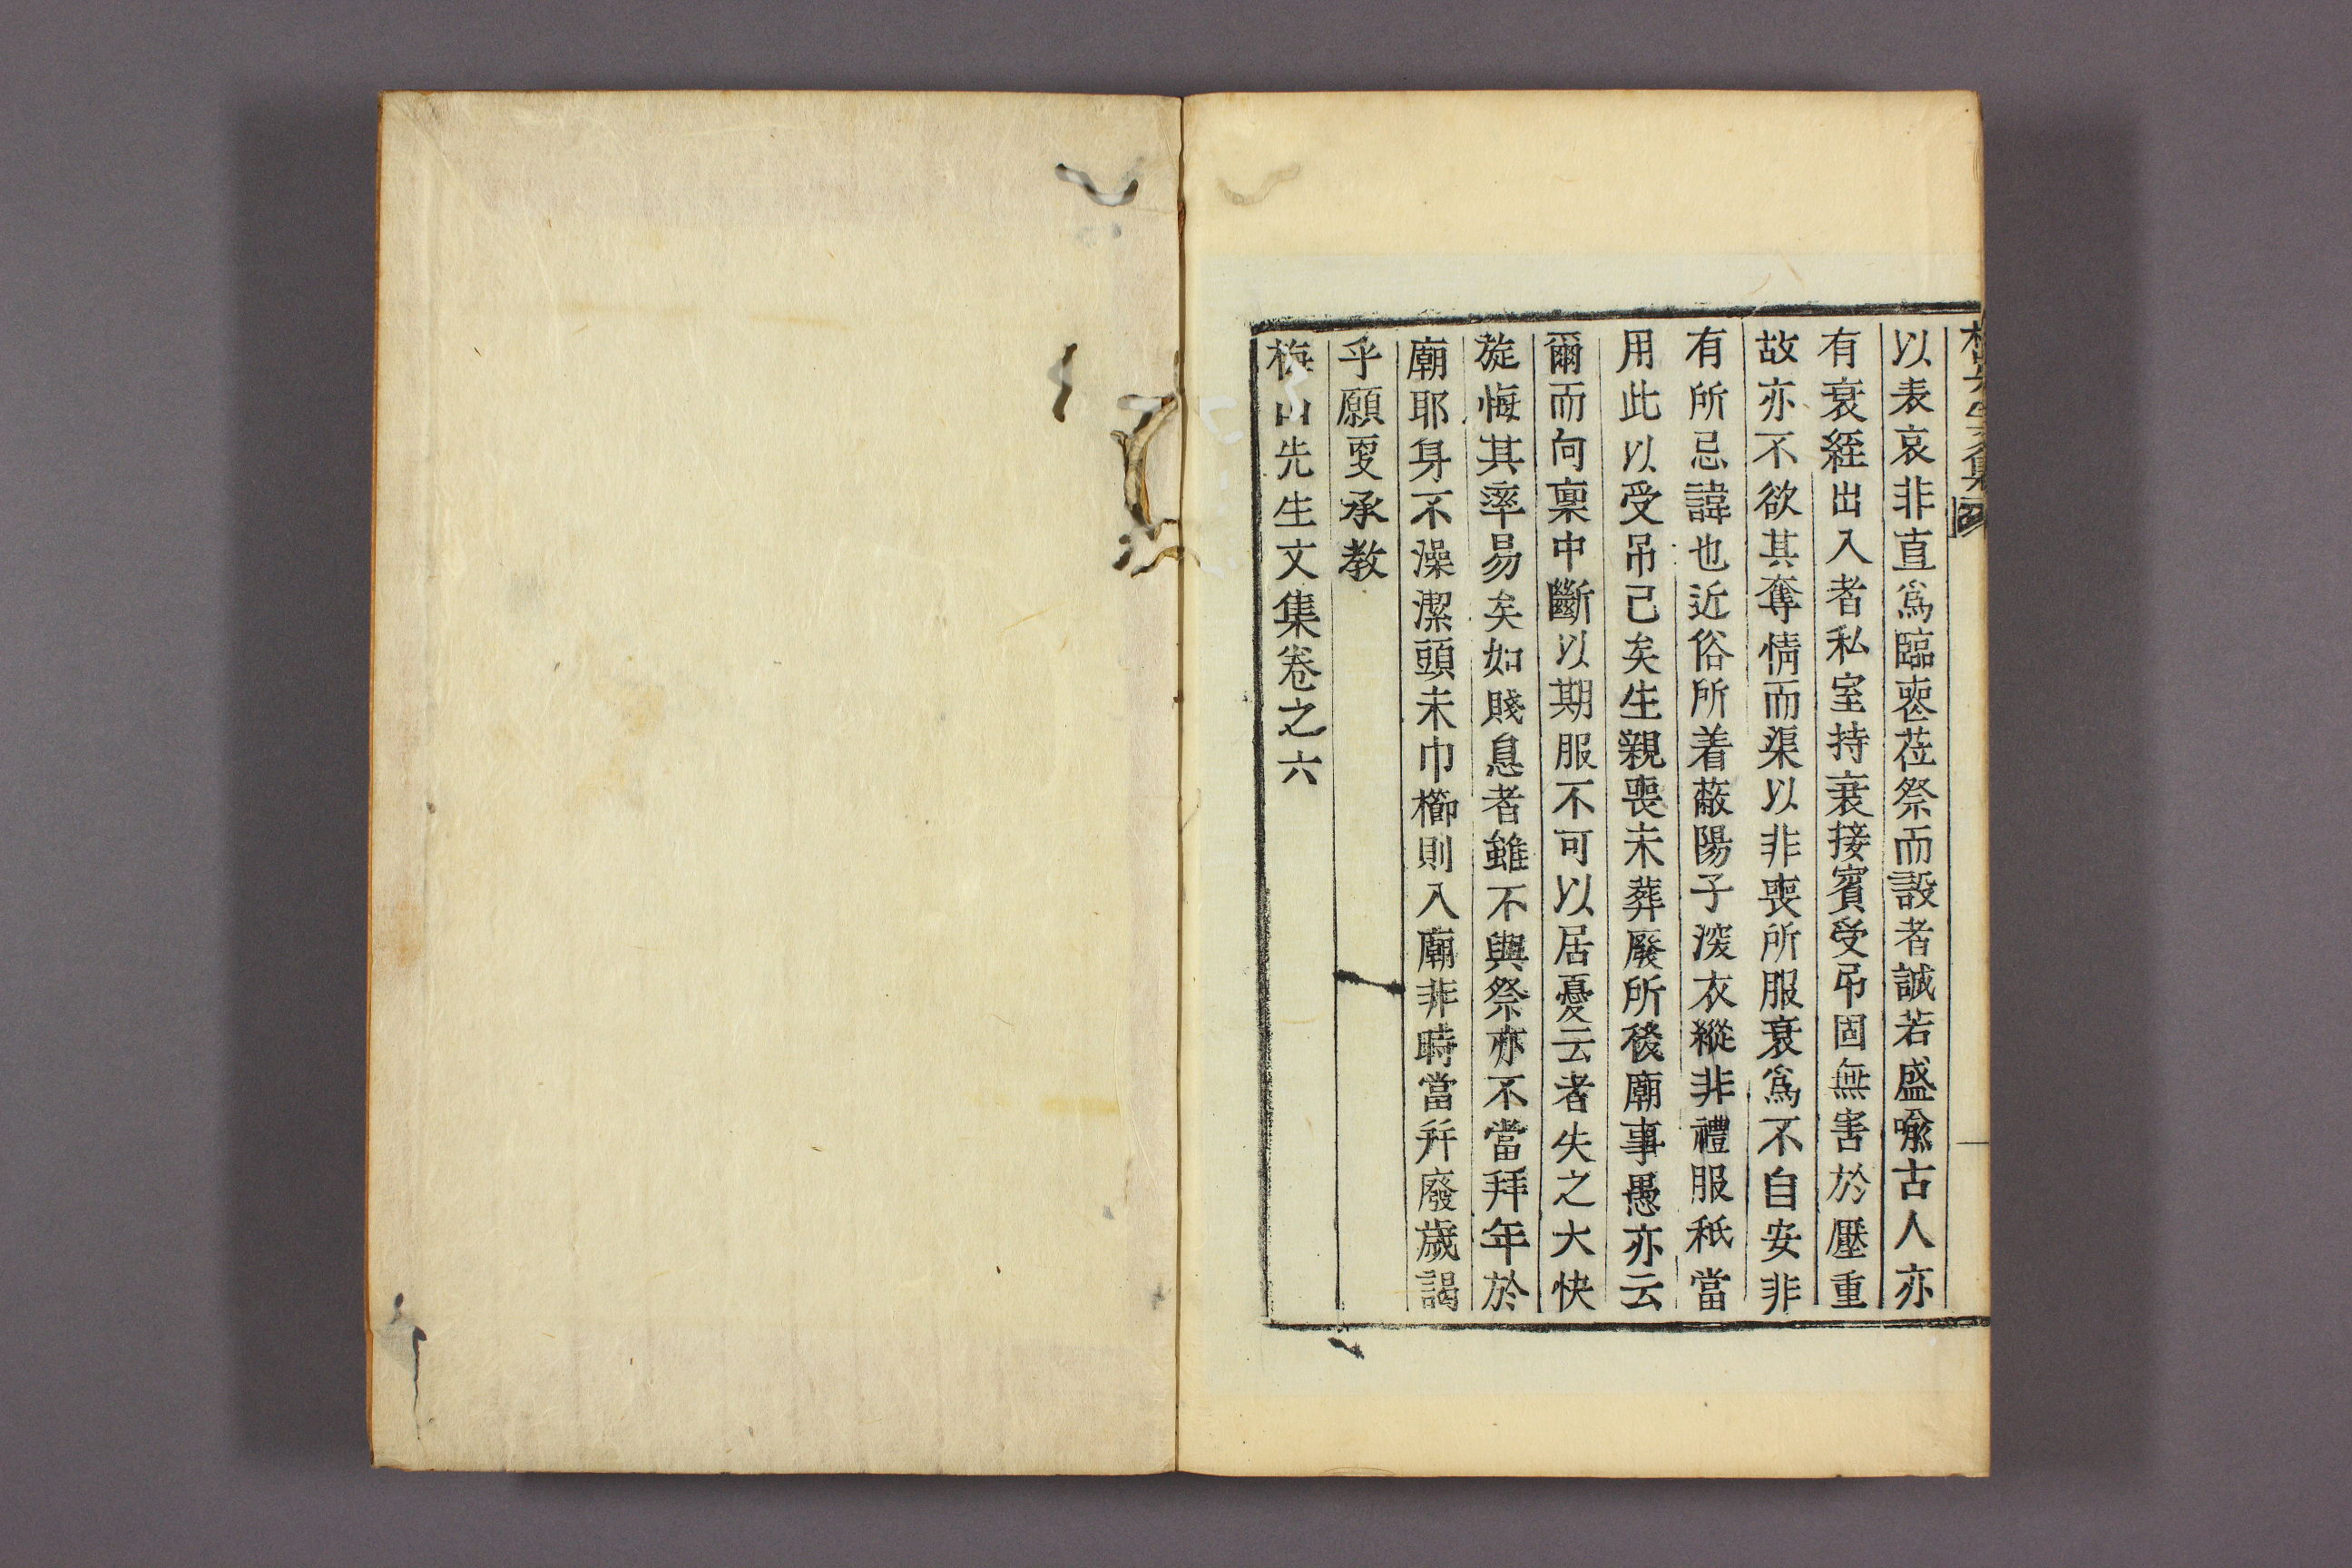 以表哀非直爲臨喪莅祭而設者誠若盛喩古人亦
有衰絰出入者私室持衰接賓受吊固無害於壓重
故亦不欲其奪情而渠以非喪所服衰爲不自安非
有所忌諱也近俗所着蔽陽子深衣縱非禮服秪當
用此以受吊已矣生親喪未葬廢所後廟事愚亦云
爾而向稟中斷以期服不可以居憂云者失之大快
旋悔其率易矣如賤息者雖不與祭亦不當拜年於
廟耶身不澡潔頭未巾櫛則入廟非時當幷廢歲謁
乎願更承教
梅山先生文集卷之六